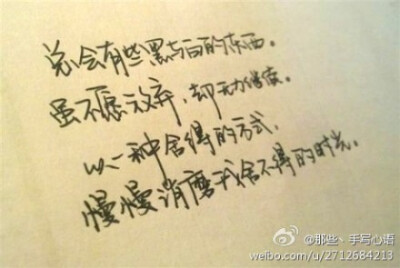 总会有些黑与白的东西。
虽不愿放弃，却无力偿使。
以一种舍得的方式，
慢慢消磨我舍不得的时光。
@那些、手写心语
weibo.com/u/2712684213